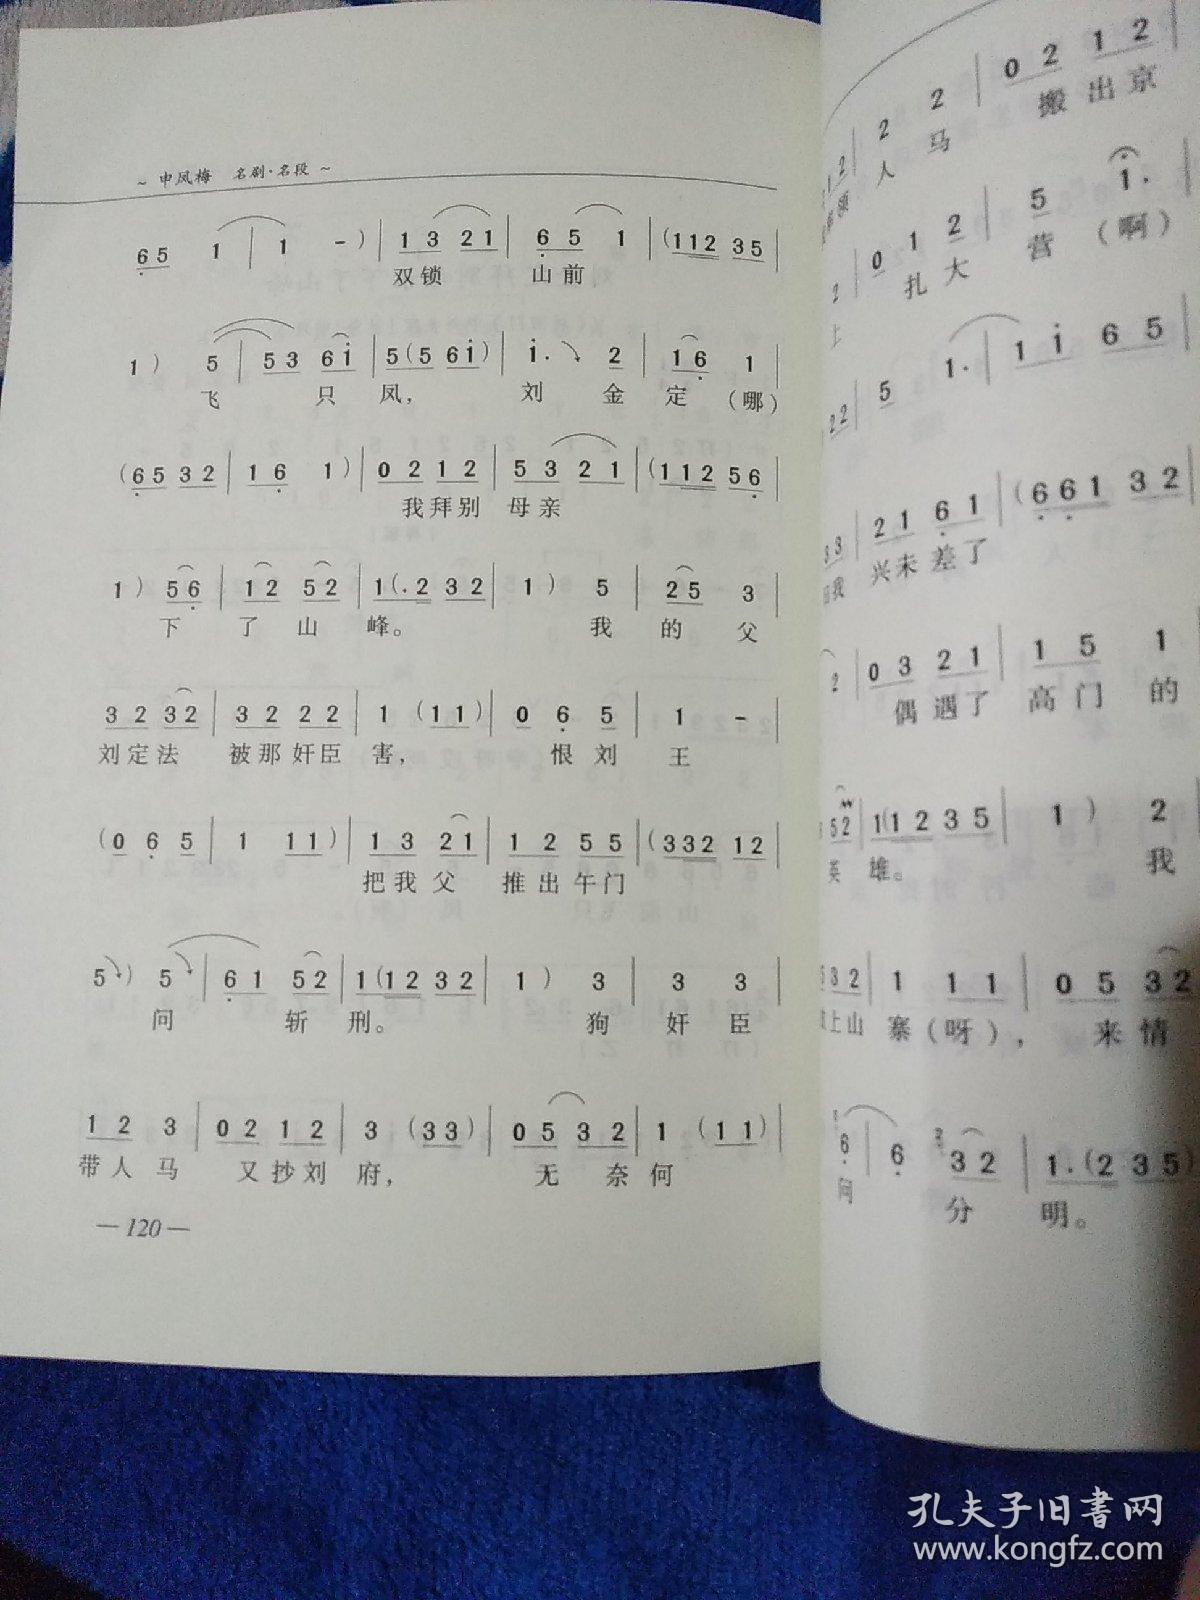 ~ 申凤梅 名剧·名段 ~
65 1 | 1 -) | 13 21 | 65 1 | (112 35 |
双锁 山前
1) 5 | 53 6i | 5(5 6i) | i· 2 | 16 1 |
飞 只 凤, 刘 金 定 (哪)
(65 32 | 16 1) | 02 12 | 53 21 | (112 56 |
我拜别 母亲
1) 56 | 12 52 | 1(·2 32 | 1) 5 | 25 3 |
下 了 山 峰。 我 的 父
32 32 | 32 22 | 1 (11) | 0 6 5 | 1 - |
刘定法 被那奸臣 害, 恨刘 王
(0 6 5 | 1 11) | 13 21 | 12 55 | (332 12 |
把我父 推出午门
5) 5 | 61 52 | 1(12 32 | 1) 3 | 3 3 |
问 斩 刑。 狗 奸 臣
12 3 | 02 12 | 3 (33) | 05 32 | 1 (11)
带人 马 又抄刘 府, 无 奈何
— 120 —
2 2 | 02 12 |
人 马 搬出京
01 2 | 5 i·
上 扎大 营 (啊)
22 | 5 1· | 1i 65
33 | 21 61 | (661 32 |
我 兴未差了
2 | 03 21 | 15 1
偶遇了 高门 的
52 | 1(12 35 | 1) 2
英 雄。 我
532 | 1 11 | 05 32
上山 寨(呀), 来情
6 | 6 32 | 1·(2 35)
问 分 明。
孔夫子旧书网
www.kongfz.com